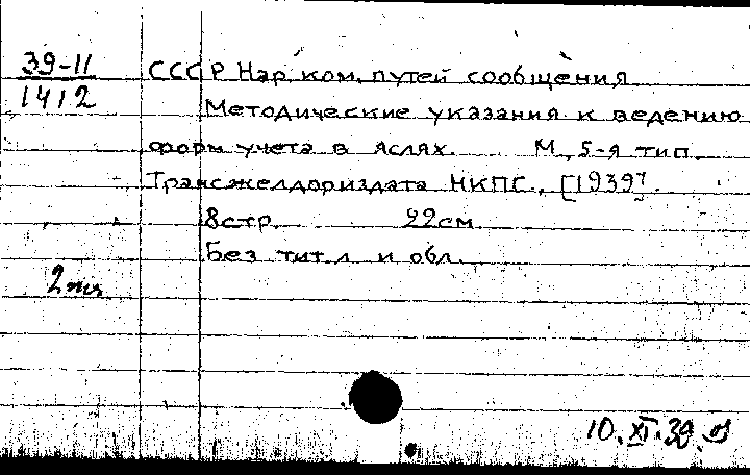 39-11
1412
СССР Нар. ком. путей сообщения
Методические указания к ведению
форм учета в яслях. М, 5-я тип.
Трансжелдориздата НКПС., [1939].
8 стр. 22 см
Без тит. л и обл.
10. XI. 39